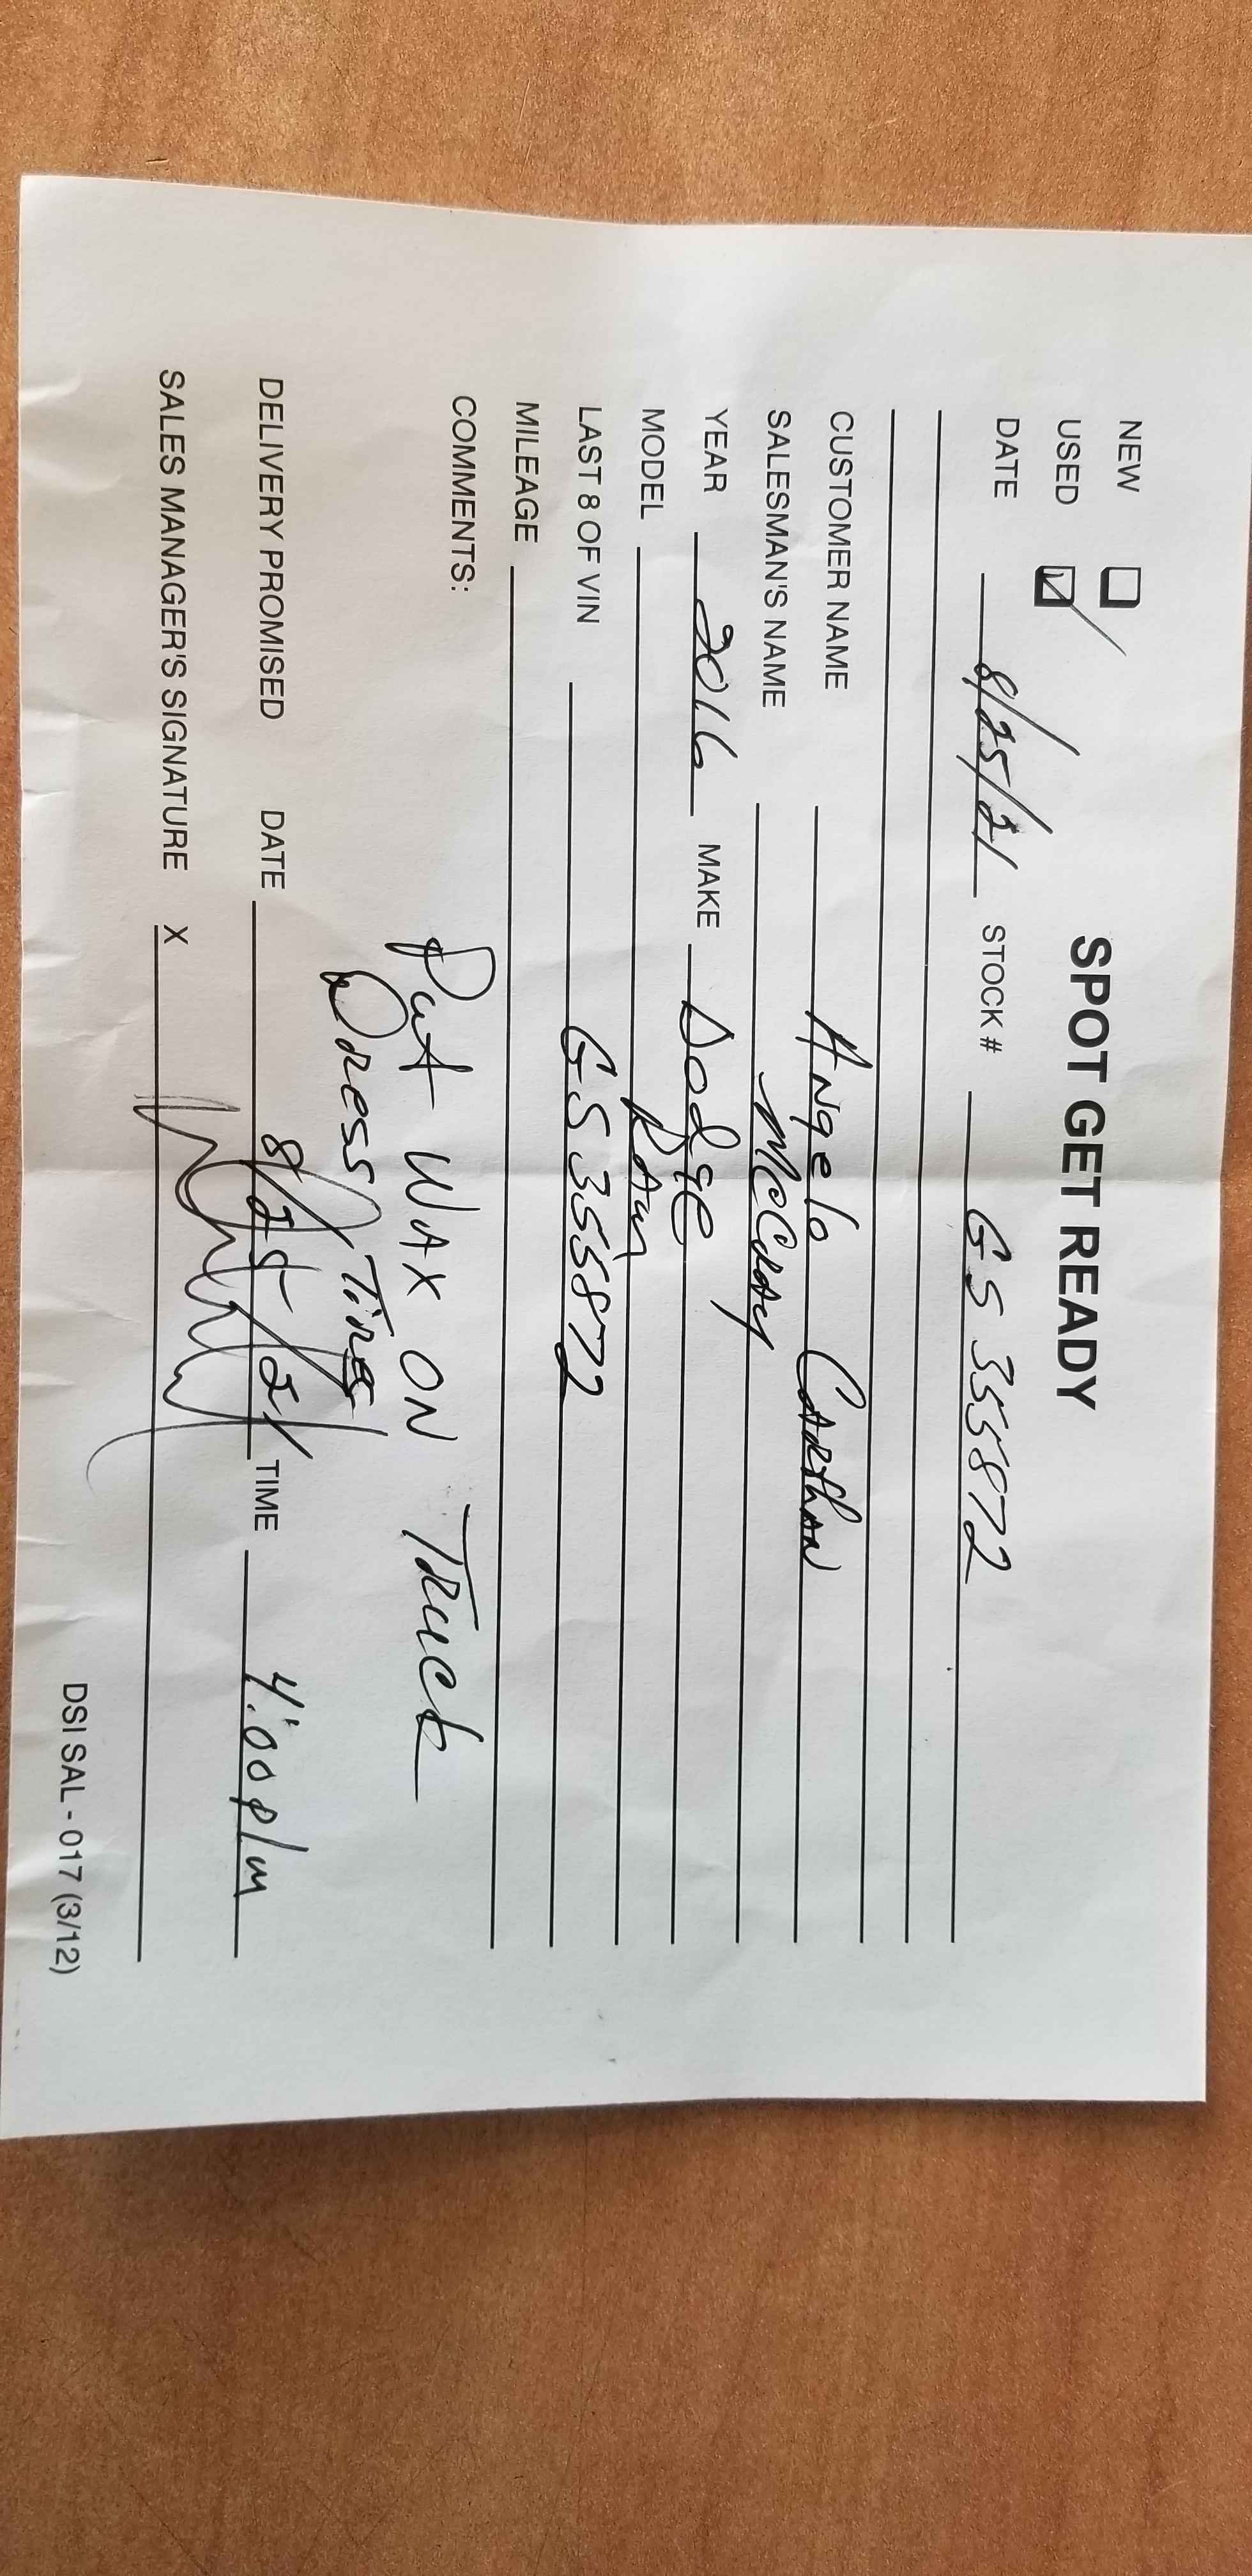 SPOT GET READY
NEW
USED
DATE 8/25/21 STOCK # GS355872
CUSTOMER NAME Angelo Carthan
SALESMAN'S NAME McCray
YEAR 2016 MAKE Dodge
MODEL Ram
LAST 8 OF VIN GS355872
MILEAGE
COMMENTS:
Put WAX ON Truck
Dress Tires
DELIVERY PROMISED DATE 8/25/21 TIME 4:00 p/m
SALES MANAGER'S SIGNATURE X
DSI SAL - 017 (3/12)